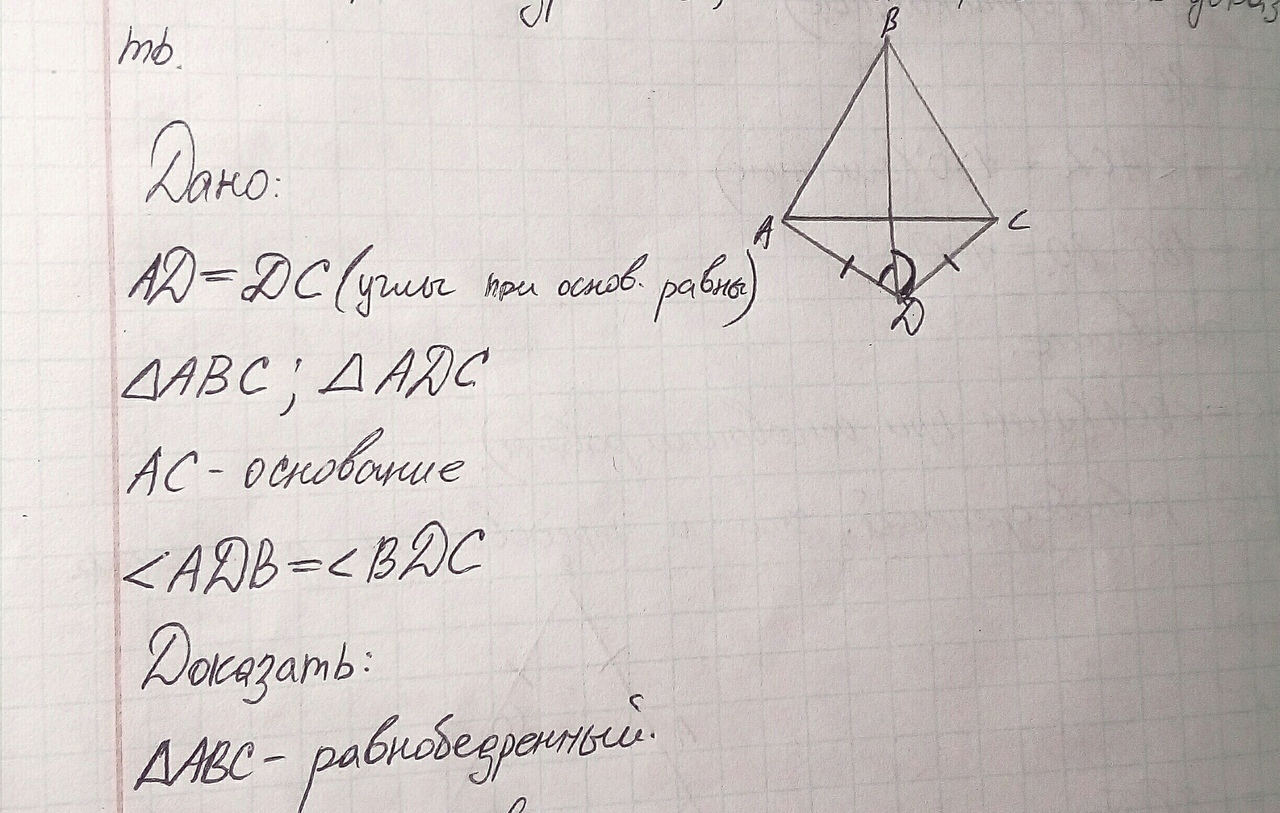 ть.
B
Дано:
A
C
AD=DC (углы при основ. равны)
D
△ABC; △ADC
AC - основание
<ADB=<BDC
Доказать:
△ABC - равнобедренный.